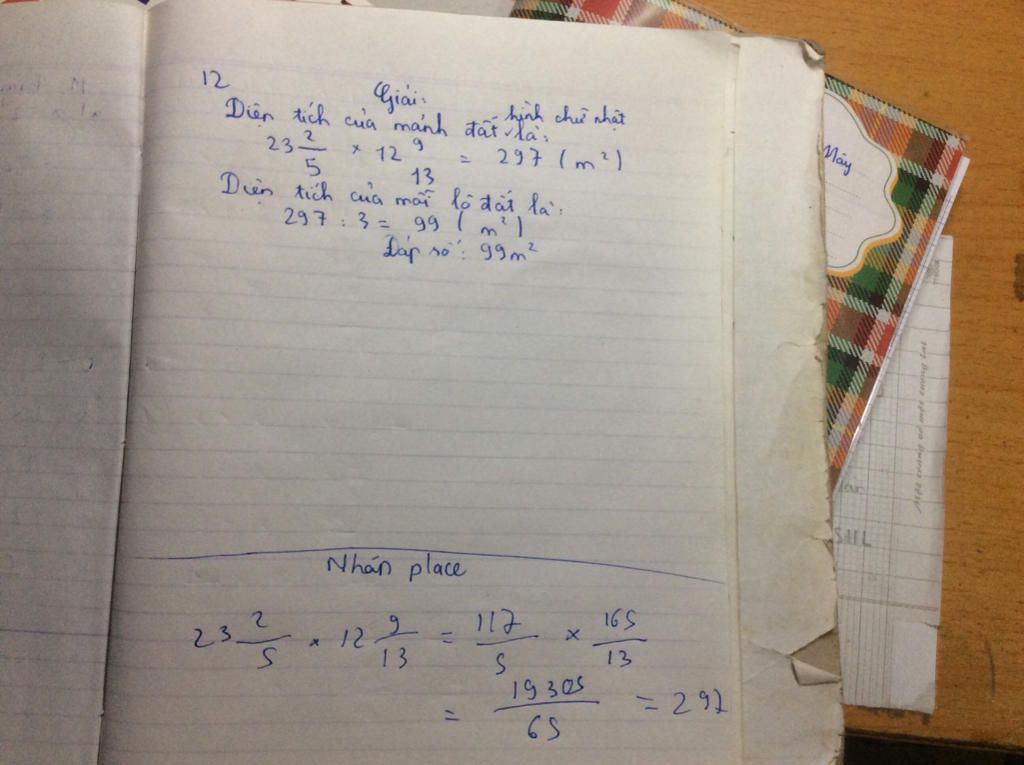 12
Giải:
Diện tích của mảnh đất hình chữ nhật là:
23 2/5 × 12 9/13 = 297 (m²)
Diện tích của mỗi lô đất là:
297 : 3 = 99 (m²)
Đáp số: 99m²
Nhán place
23 2/5 × 12 9/13 = 117/5 × 165/13
= 19305/65 = 297
Mây